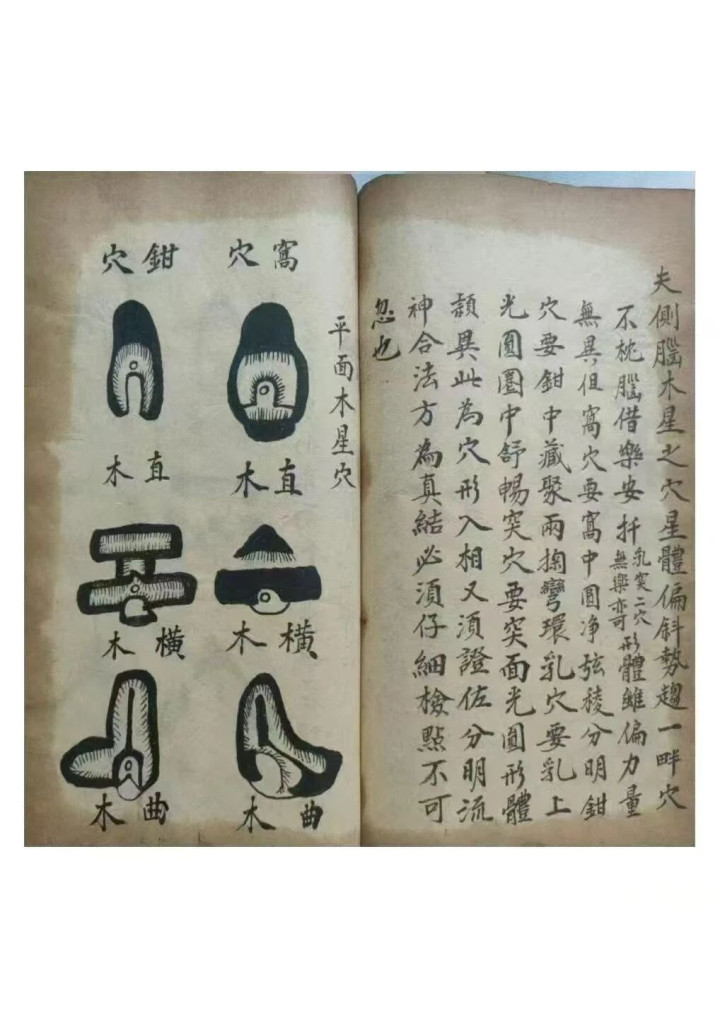 夫側腦木星之穴星體偏斜勢趨一畔穴
不枕腦借樂安扦乳突二穴無樂亦可形體雖偏力量
無異但窩穴要窩中圓净弦稜分明鉗
穴要鉗中藏聚兩掬彎環乳穴要乳上
光圓圈中舒暢突穴要突面光圓形體
頴異此為穴形入相又須證佐分明流
神合法方為真結必須仔細檢點不可
忽也
平面木星穴
窩穴
直木
橫木
曲木
鉗穴
直木
橫木
曲木